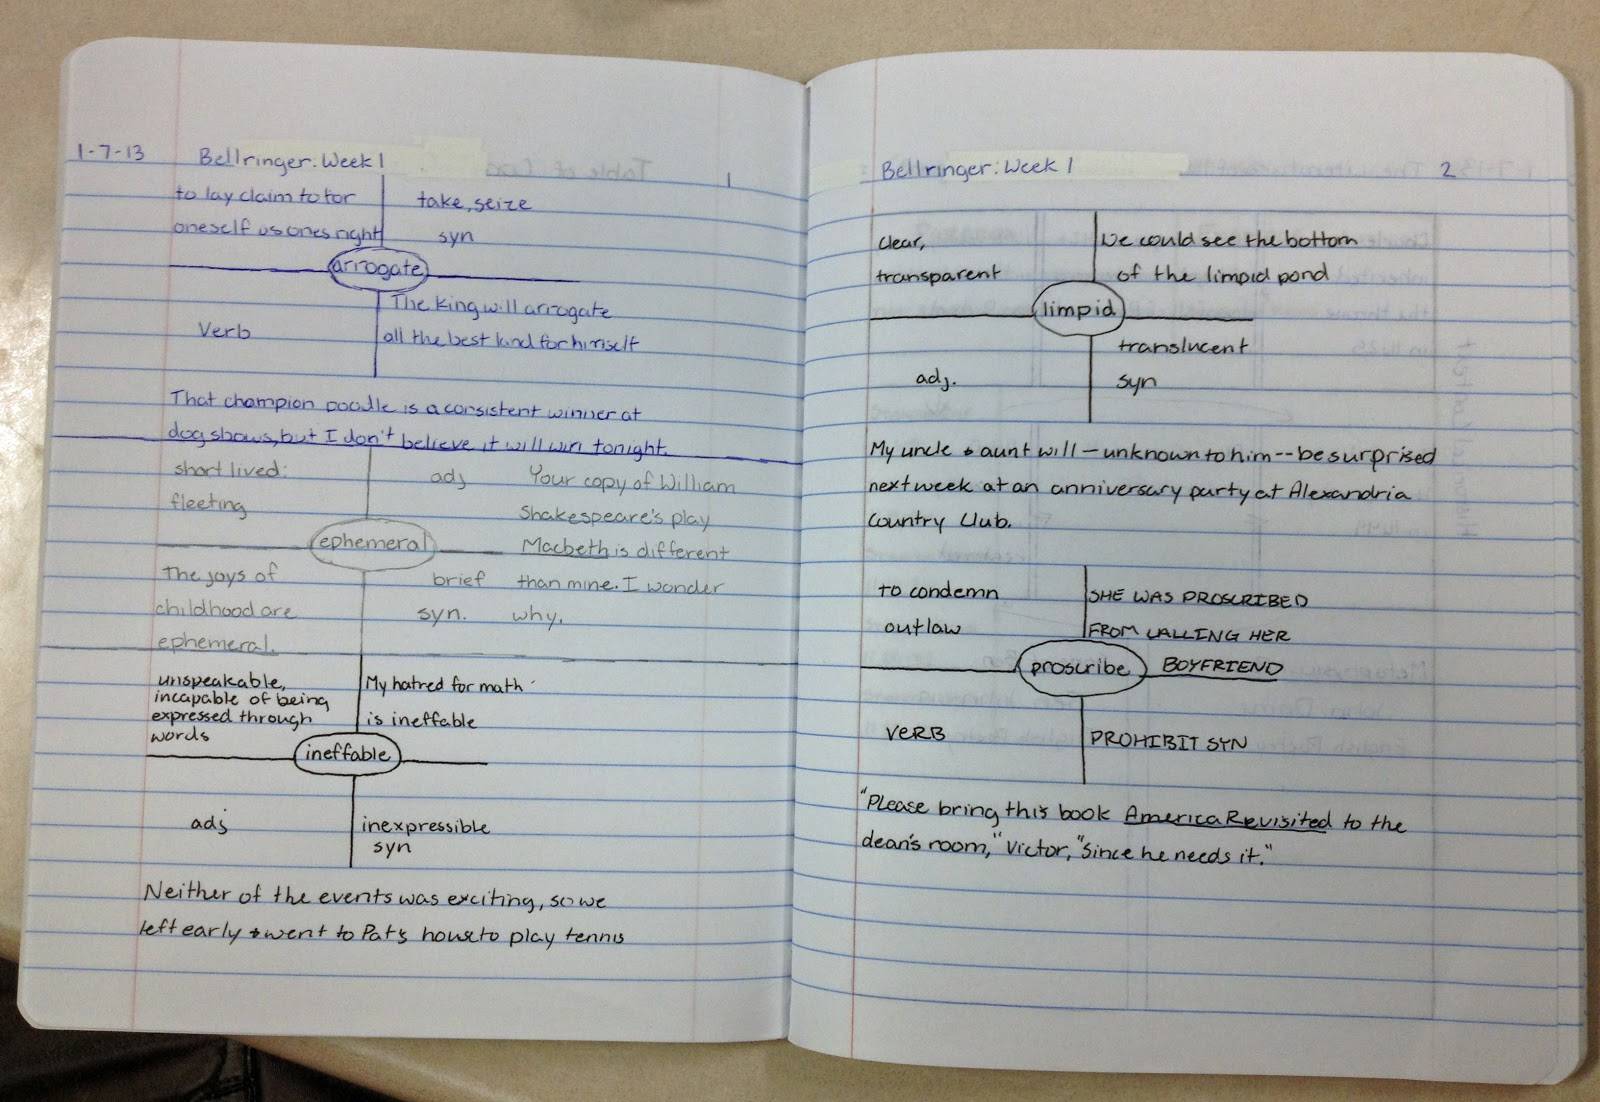 1-7-13 Bellringer: Week 1
1
to lay claim to for
oneself as ones right
take, seize
syn
arrogate
Verb
The King will arrogate
all the best land for himself
That champion poodle is a consistent winner at
dog shows, but I don't believe it will win tonight.
short lived:
fleeting
adj
ephemeral
The joys of
childhood are
ephemeral.
brief
syn.
Your copy of William
Shakespeare's play
Macbeth is different
than mine. I wonder
why.
unspeakable,
incapable of being
expressed through
words
My hatred for math
is ineffable
ineffable
adj
inexpressible
syn
Neither of the events was exciting, so we
left early & went to Pat's house to play tennis
Bellringer: Week 1
2
clear,
transparent
We could see the bottom
of the limpid pond
limpid
adj.
translucent
syn
My uncle & aunt will - unknown to him -- be surprised
next week at an anniversary party at Alexandria
Country Club.
to condemn
outlaw
SHE WAS PROSCRIBED
FROM CALLING HER
BOYFRIEND
proscribe
VERB
PROHIBIT SYN
"Please bring this book America Revisited to the
dean's room," Victor, "since he needs it."